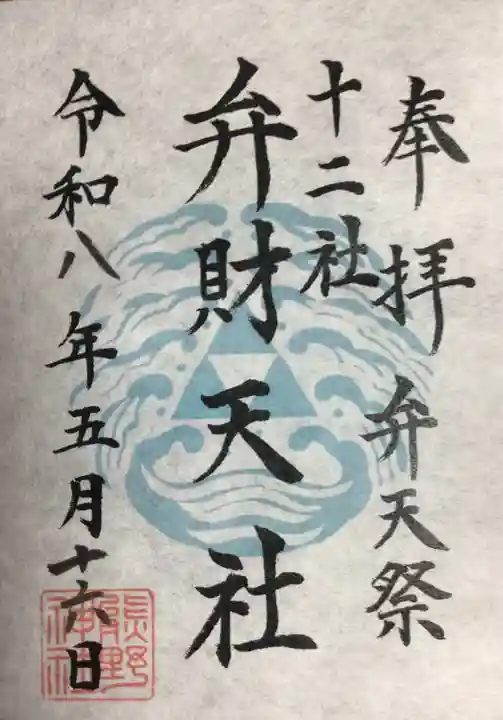 奉拝 弁天祭
十二社
弁財天社
令和八年五月十六日
熊野
神社